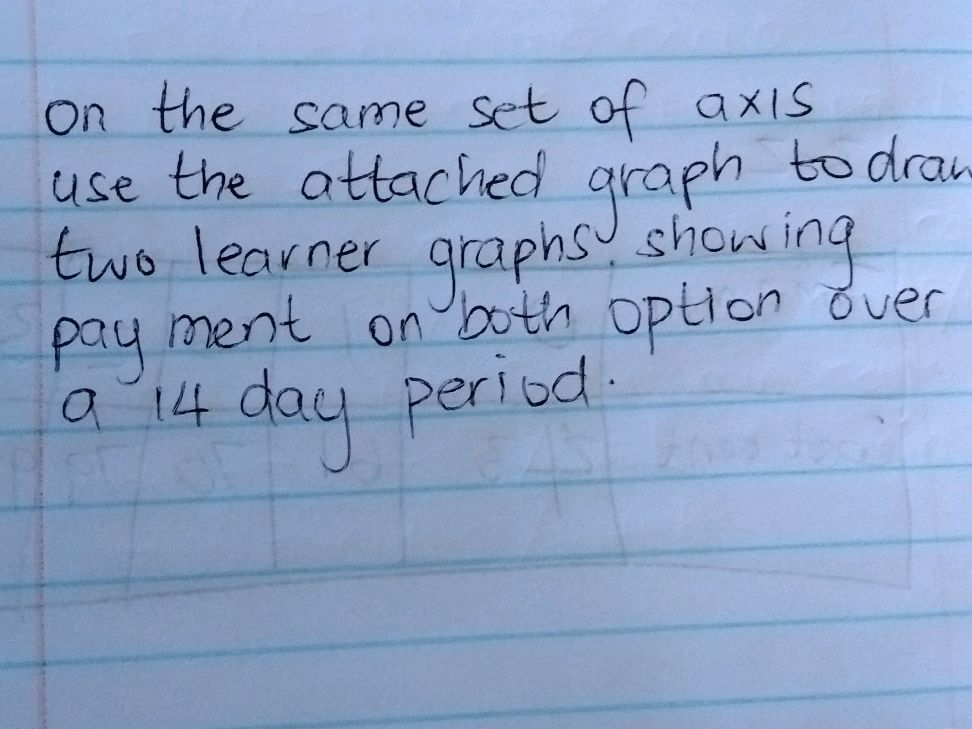 on the same set of axis
use the attached graph to draw
two learner graphs, showing
pay ment on both option over
a 14 day period.